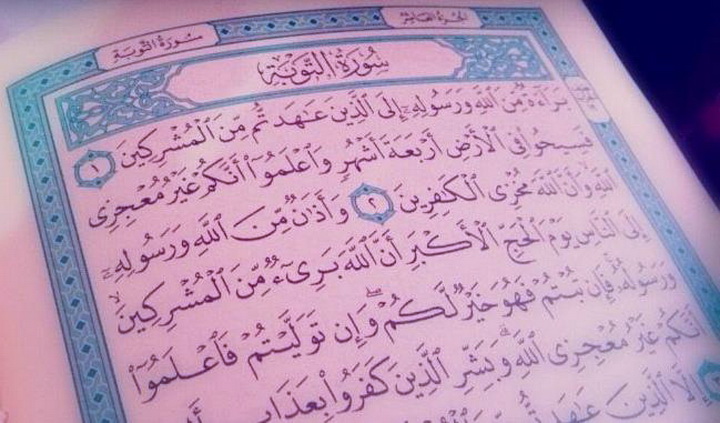 سورة التوبة
الجزء العاشر
سُورَةُ التَّوْبَةِ
بَرَآءَةٌ مِّنَ ٱللَّهِ وَرَسُولِهِۦٓ إِلَى ٱلَّذِينَ عَٰهَدتُّم مِّنَ ٱلْمُشْرِكِينَ ١
فَسِيحُوا۟ فِى ٱلْأَرْضِ أَرْبَعَةَ أَشْهُرٍ وَٱعْلَمُوٓا۟ أَنَّكُمْ غَيْرُ مُعْجِزِى
ٱللَّهِ وَأَنَّ ٱللَّهَ مُخْزِى ٱلْكَٰفِرِينَ ٢ وَأَذَٰنٌ مِّنَ ٱللَّهِ وَرَسُولِهِۦٓ
إِلَى ٱلنَّاسِ يَوْمَ ٱلْحَجِّ ٱلْأَكْبَرِ أَنَّ ٱللَّهَ بَرِىٓءٌ مِّنَ ٱلْمُشْرِكِينَ
وَرَسُولُهُۥ فَإِن تُبْتُمْ فَهُوَ خَيْرٌ لَّكُمْ وَإِن تَوَلَّيْتُمْ فَٱعْلَمُوٓا۟
أَنَّكُمْ غَيْرُ مُعْجِزِى ٱللَّهِ وَبَشِّرِ ٱلَّذِينَ كَفَرُوا۟ بِعَذَابٍ
إِلَّا ٱلَّذِينَ